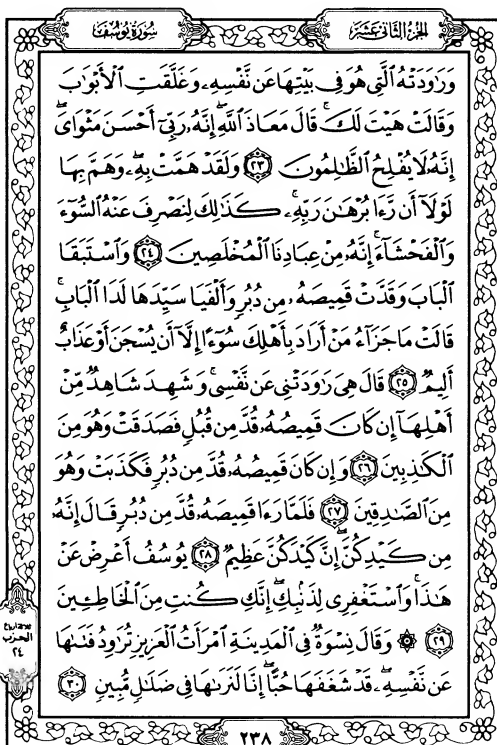 سُورَةُ يُوسُفَ
الجُزْءُ الثَّانِي عَشَرَ
وَرَٰوَدَتْهُ ٱلَّتِى هُوَ فِى بَيْتِهَا عَن نَّفْسِهِۦ وَغَلَّقَتِ ٱلْأَبْوَٰبَ
وَقَالَتْ هَيْتَ لَكَ ۚ قَالَ مَعَاذَ ٱللَّهِ ۖ إِنَّهُۥ رَبِّىٓ أَحْسَنَ مَثْوَاىَ ۖ
إِنَّهُۥ لَا يُفْلِحُ ٱلظَّٰلِمُونَ ﴿٢٣﴾ وَلَقَدْ هَمَّتْ بِهِۦ ۖ وَهَمَّ بِهَا
لَوْلَآ أَن رَّءَا بُرْهَٰنَ رَبِّهِۦ ۚ كَذَٰلِكَ لِنَصْرِفَ عَنْهُ ٱلسُّوٓءَ
وَٱلْفَحْشَآءَ ۚ إِنَّهُۥ مِنْ عِبَادِنَا ٱلْمُخْلَصِينَ ﴿٢٤﴾ وَٱسْتَبَقَا
ٱلْبَابَ وَقَدَّتْ قَمِيصَهُۥ مِن دُبُرٍ وَأَلْفَيَا سَيِّدَهَا لَدَا ٱلْبَابِ ۚ
قَالَتْ مَا جَزَآءُ مَنْ أَرَادَ بِأَهْلِكَ سُوٓءًا إِلَّآ أَن يُسْجَنَ أَوْ عَذَابٌ
أَلِيمٌ ﴿٢٥﴾ قَالَ هِىَ رَٰوَدَتْنِى عَن نَّفْسِى ۚ وَشَهِدَ شَاهِدٌ مِّنْ
أَهْلِهَآ إِن كَانَ قَمِيصُهُۥ قُدَّ مِن قُبُلٍ فَصَدَقَتْ وَهُوَ مِنَ
ٱلْكَٰذِبِينَ ﴿٢٦﴾ وَإِن كَانَ قَمِيصُهُۥ قُدَّ مِن دُبُرٍ فَكَذَبَتْ وَهُوَ
مِنَ ٱلصَّٰدِقِينَ ﴿٢٧﴾ فَلَمَّا رَءَا قَمِيصَهُۥ قُدَّ مِن دُبُرٍ قَالَ إِنَّهُۥ
مِن كَيْدِكُنَّ ۖ إِنَّ كَيْدَكُنَّ عَظِيمٌ ﴿٢٨﴾ يُوسُفُ أَعْرِضْ عَنْ
هَٰذَا ۚ وَٱسْتَغْفِرِى لِذَنۢبِكِ ۖ إِنَّكِ كُنتِ مِنَ ٱلْخَاطِـِٔينَ
﴿٢٩﴾ ۞ وَقَالَ نِسْوَةٌ فِى ٱلْمَدِينَةِ ٱمْرَأَتُ ٱلْعَزِيزِ تُرَٰوِدُ فَتَىٰهَا
عَن نَّفْسِهِۦ ۖ قَدْ شَغَفَهَا حُبًّا ۖ إِنَّا لَنَرَىٰهَا فِى ضَلَٰلٍ مُّبِينٍ ﴿٣٠﴾
ثلاثة أرباع
الحزب
٢٤
٢٣٨